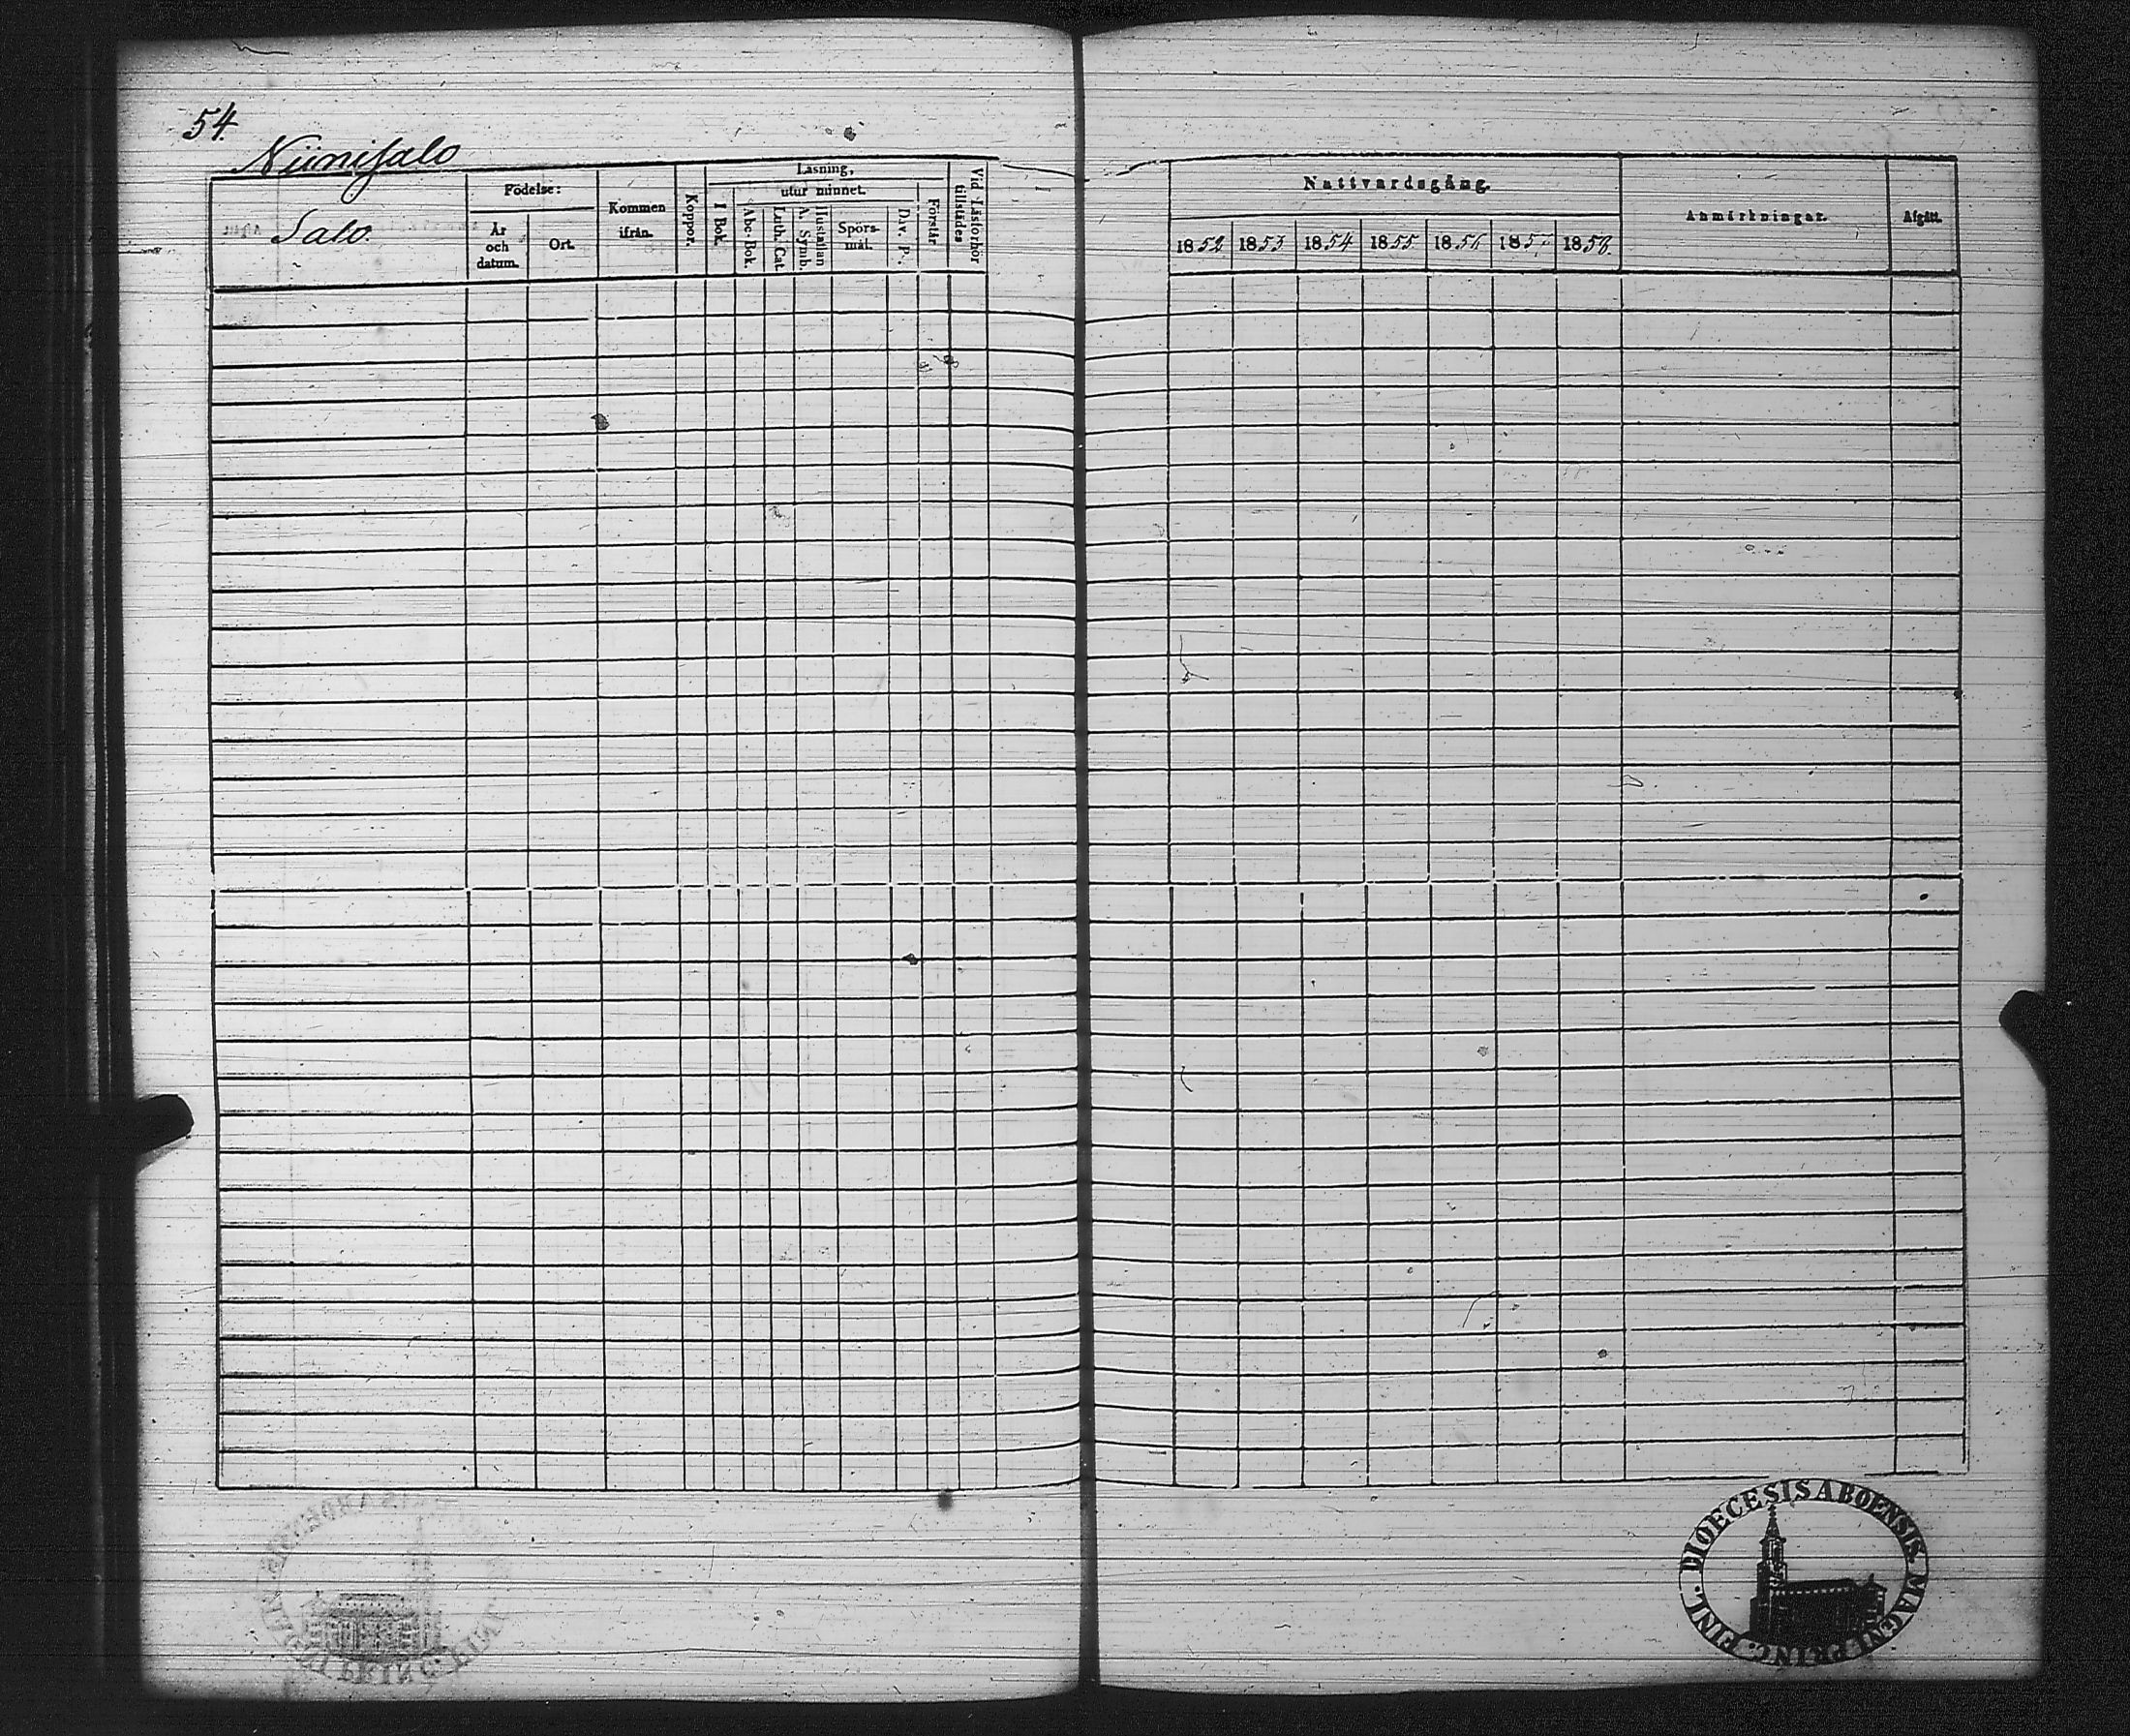 54.
Niinisalo
Salo.
Födelse:
År och datum.
Ort.
Kommen ifrån.
Koppor.
Läsning,
utur minnet.
I Bok.
Abc-Bok.
Luth. Cat.
A. Symb.
Hustaflan
Spörs-mål.
Dav. P.
Förstår
Vid Läsförhör tillstädes
Nattvardsgång.
1852 1853 1854 1855 1856 1857 1858.
Anmärkningar.
Afgått.
DIOECESIS ABOENSIS. MAGNI PRINC. FINL.